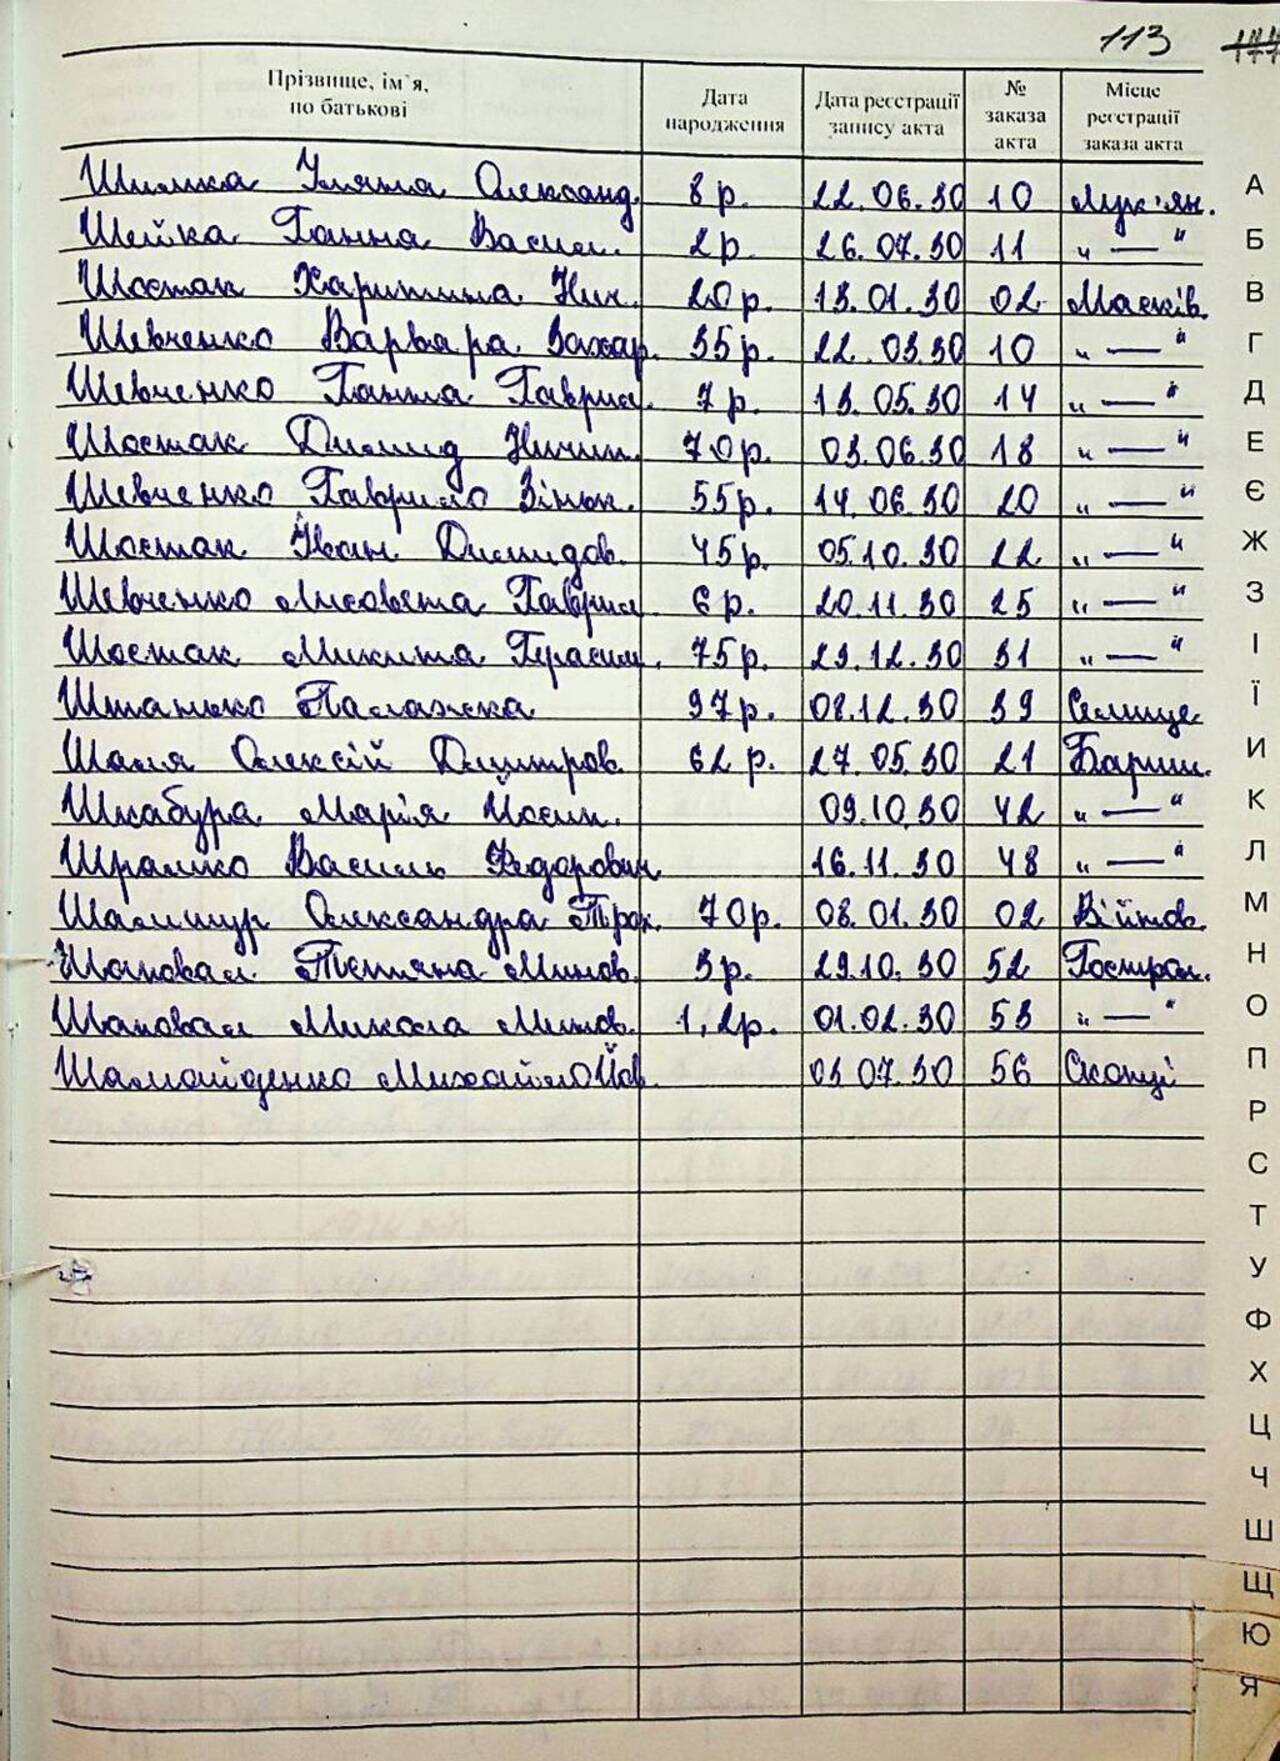 113 177
Прізвище, ім`я, по батькові Дата народження Дата реєстрації запису акта № заказа акта Місце реєстрації заказа акта
Шимка Уляна Олександ. 8 р. 22.06.30 10 Лук'ян.
Шейка Ганна Васил. 2 р. 26.07.30 11 " — "
Шостак Харитина Нич. 20 р. 13.01.30 02 Масків.
Шевченко Варвара Захар. 35 р. 22.03.30 10 " — "
Шевченко Ганна Гаврил. 7 р. 13.05.30 14 " — "
Шостак Дишид Ничип. 70 р. 03.06.30 18 " — "
Шевченко Гаврило Зінок. 55 р. 14.06.30 20 " — "
Шостак Іван Дишидов. 45 р. 05.10.30 22 " — "
Шевченко Лисовета Гаврил. 6 р. 20.11.30 25 " — "
Шостак Микита Герасим. 75 р. 29.12.30 31 " — "
Штанько Палажка 97 р. 08.12.30 39 Селище
Шаля Олексій Дмитров. 62 р. 27.05.30 21 Бариш.
Шкабура Марія Йосип. 09.10.30 42 " — "
Шрамко Василь Федорович 16.11.30 48 " — "
Шалимур Олександра Трох. 70 р. 08.01.30 02 Війтов.
Шаповал Тетяна Минов. 3 р. 29.10.30 52 Гострол.
Шаповал Микола Минов. 1,2 р. 01.02.30 53 " — "
Шамайденко Михайло Йов. 03.07.30 56 Скопці
А
Б
В
Г
Д
Е
Є
Ж
З
І
Ї
И
К
Л
М
Н
О
П
Р
С
Т
У
Ф
Х
Ц
Ч
Ш
Щ
Ю
Я